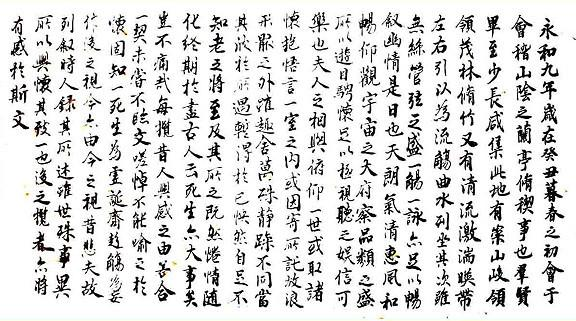 永和九年歲在癸丑暮春之初會于
會稽山陰之蘭亭脩稧事也羣賢
畢至少長咸集此地有崇山峻領
領茂林脩竹又有清流激湍暎帶
左右引以為流觴曲水列坐其次雖
無絲管弦之盛一觴一詠亦足以暢
叙幽情是日也天朗氣清惠風和
暢仰觀宇宙之大府察品類之盛
所以遊目騁懷足以極視聽之娛信可
樂也夫人之相與俯仰一世或取諸
懷抱悟言一室之內或因寄所託放浪
形骸之外雖趣舍萬殊静躁不同當
其欣於所遇暫得於己怏然自足不
知老之將至及其所之既然惓情隨
化終期於盡古人云死生亦大矣
豈不痛哉每攬昔人興感之由若合
一契未嘗不臨文嗟悼不能喻之於
懷固知一死生為虛誕齊彭殤為妄
作後之視今亦由今之視昔悲夫故
列叙時人錄其所述雖世殊事異
所以興懷其致一也後之攬者亦將
有感於斯文